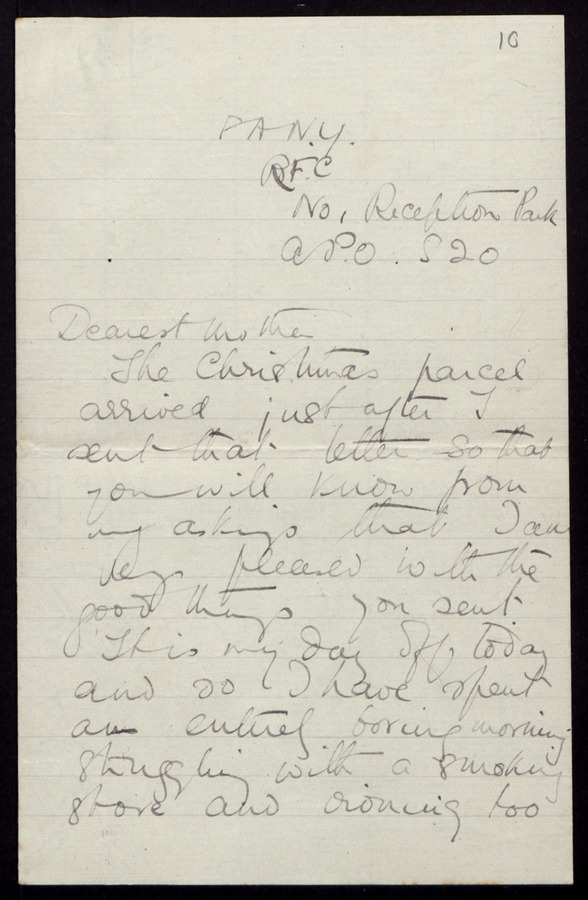 10
P.A.N.Y.
R.F.C
No 1 Reception Park
A.P.O. S20
Dearest Mother
The Christmas parcel
arrived just after I
sent that letter so that
you will know from
my askings that I am
very pleased with the
good things you sent
It is my day off today
and so I have spent
an entirely boring morning
struggling with a smoking
stove and ironing too